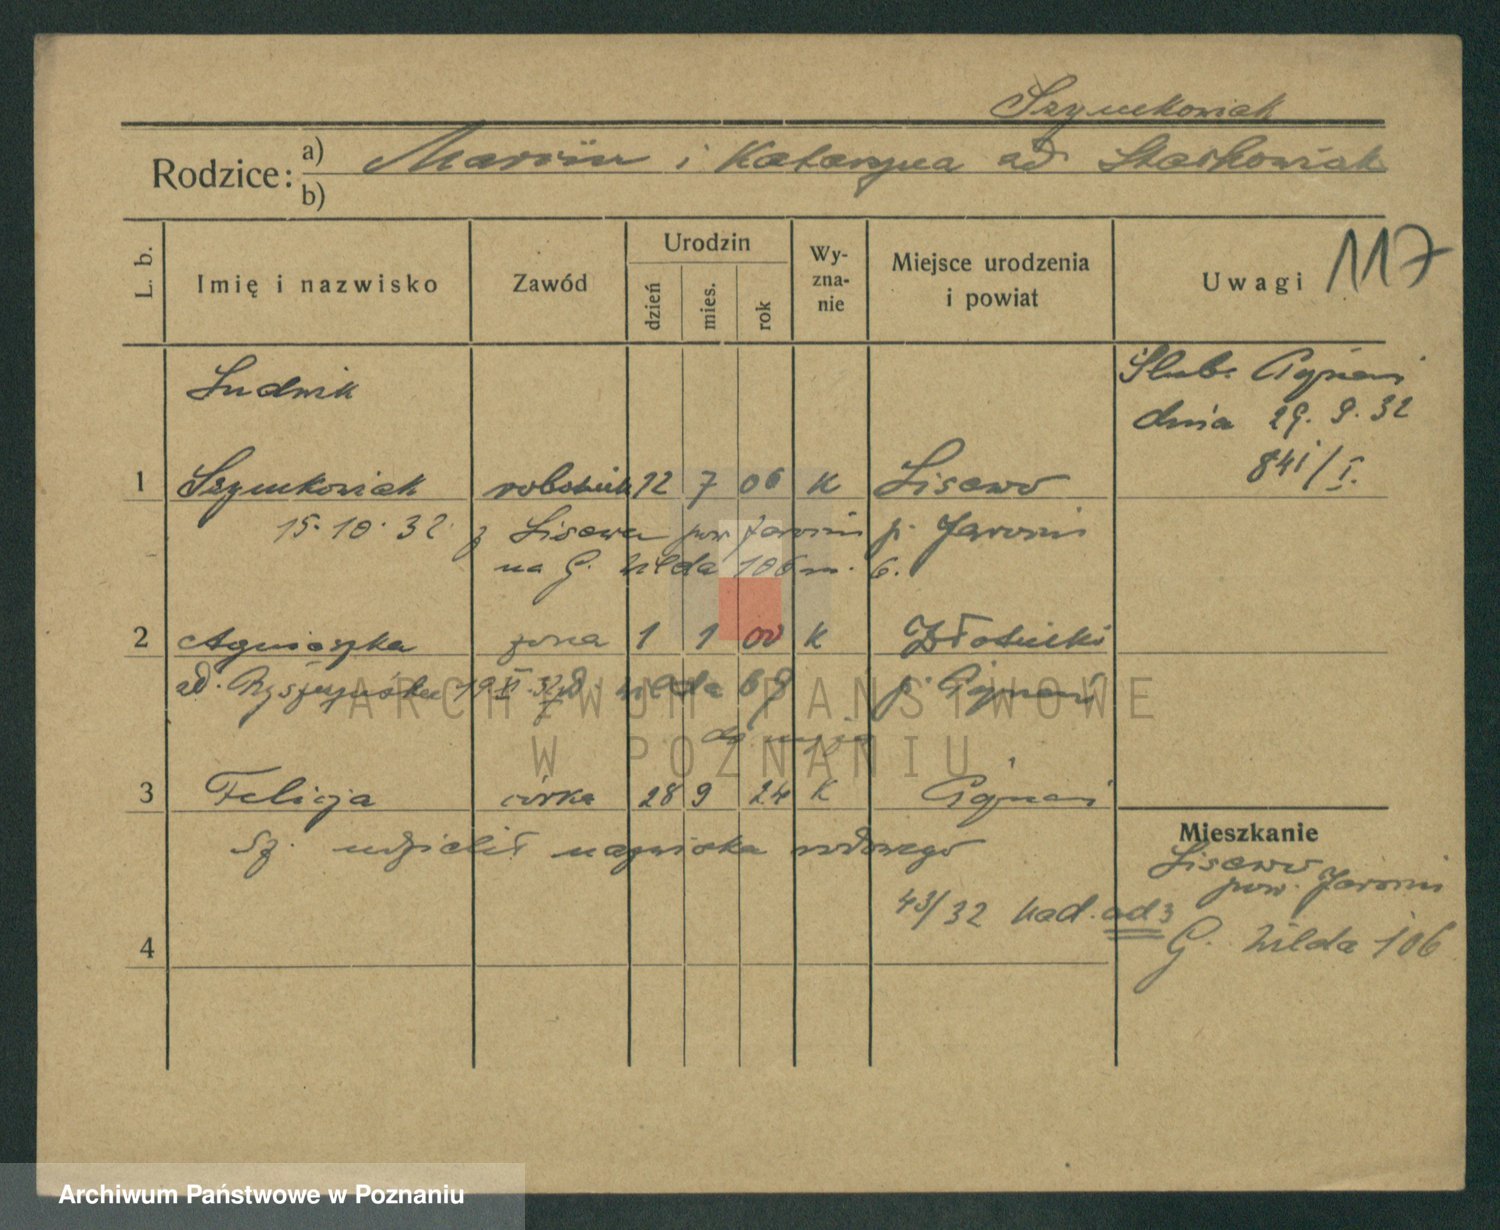 Szymkowiak
Rodzice: a) Marcin i Katarzyna ad Starkowiak
b)
L. b. Imię i nazwisko Zawód Urodzin dzień mies. rok Wyznanie Miejsce urodzenia i powiat Uwagi 117
Ludwik
Ślub: Poznań
dnia 29. 9. 32
841/I.
1 Szymkowiak robotnik 12 7 06 K Lisewo
15. 10. 32. z Lisewa pow Jarocin p. Jarocin
na G. Wilda 106 m. 6.
2 Agnieszka żona 1 1 00 K Złotniki
ad. 19 XI. 32 G. Wilda 68 p. Poznań
3 Felicja córka 28 9 24 K Poznań
Sz. udzielił nazwiska rodowego
43/32 nad. ad 3
4
Mieszkanie
Lisewo
pow. Jarocin
G. Wilda 106
ARCHIWUM PAŃSTWOWE
W POZNANIU
Archiwum Państwowe w Poznaniu